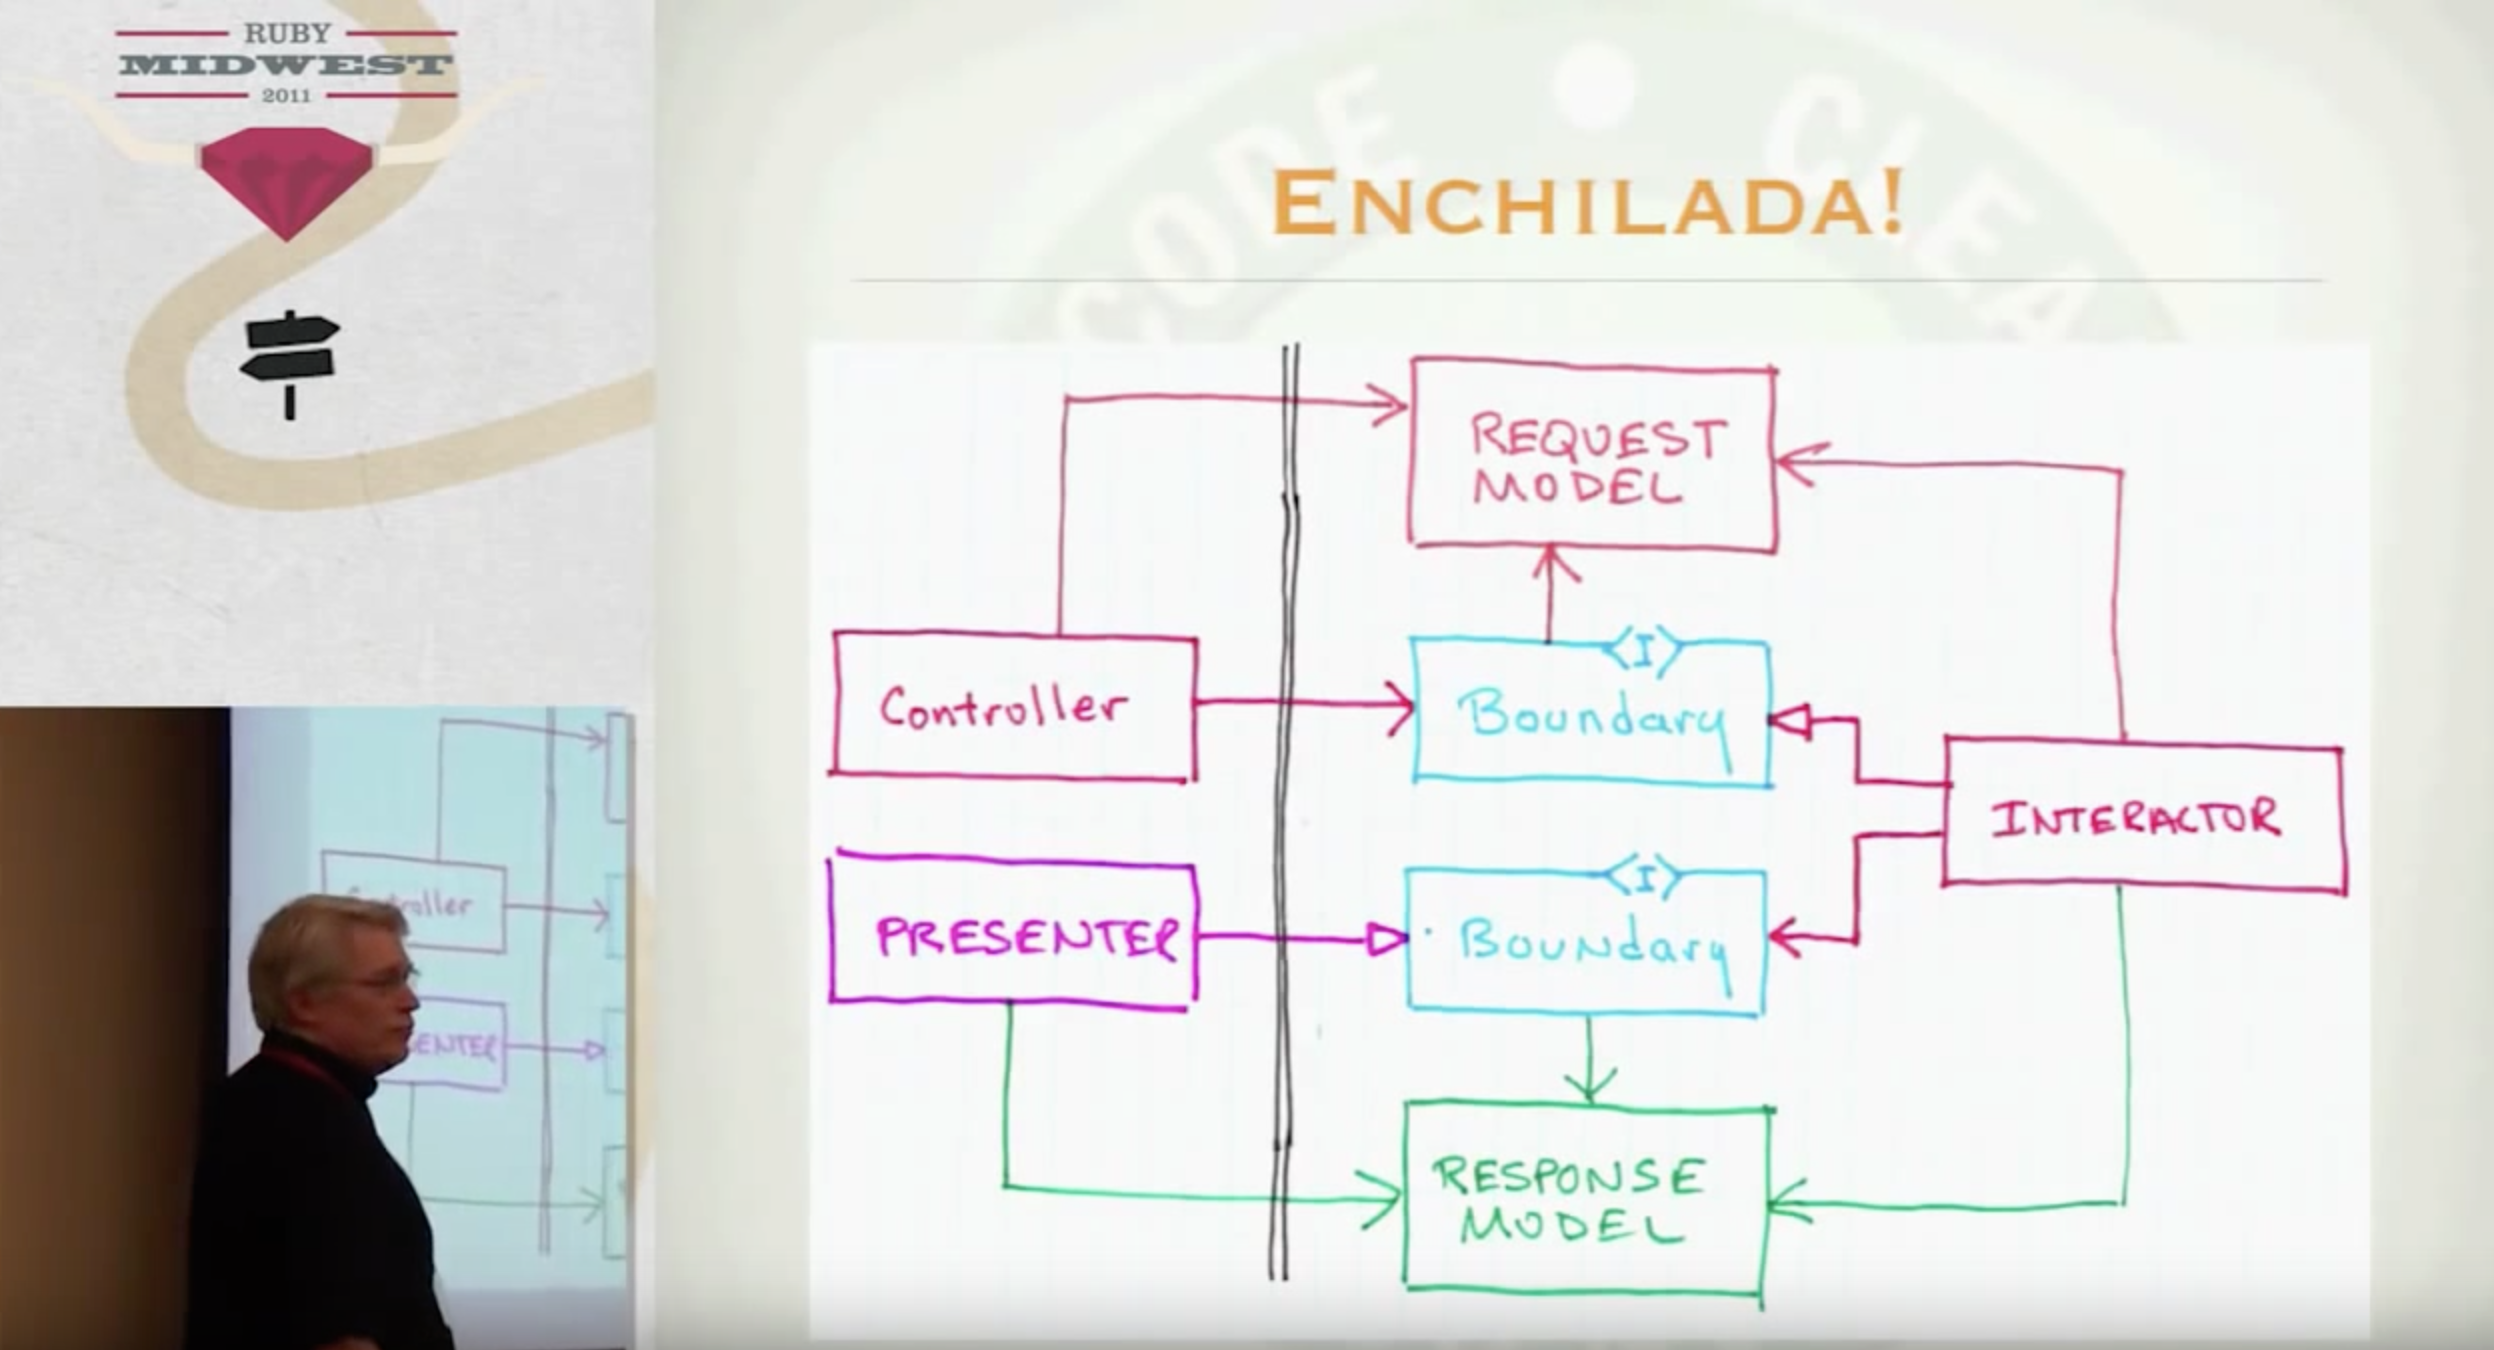 RUBY
MIDWEST
2011
CODE CLEA
ENCHILADA!
REQUEST
MODEL
Controller
<I>
Boundary
INTERACTOR
PRESENTER
<I>
Boundary
RESPONSE
MODEL
troller
ENTER